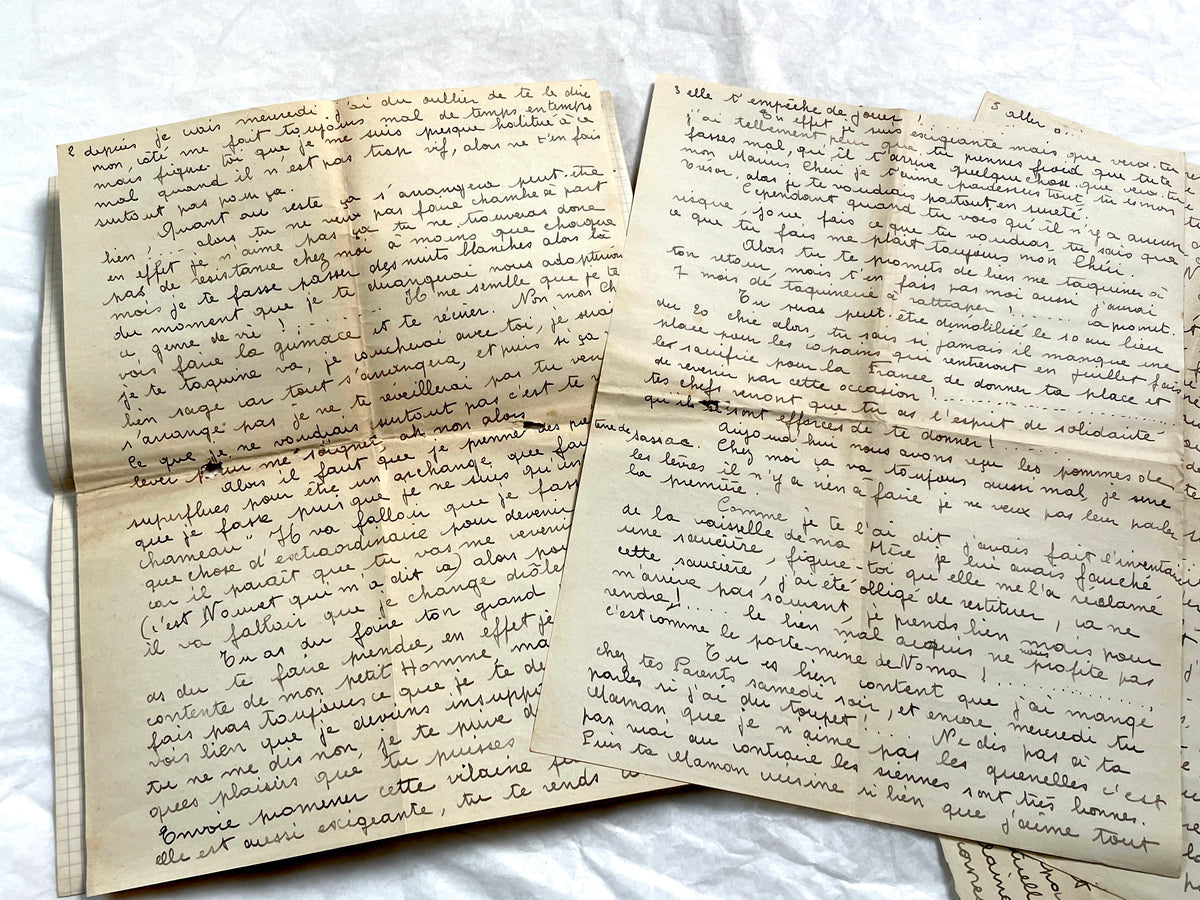 2 depuis je crois mercredi j'ai du oublier de te le dire
mon côté me fait toujours mal de temps en temps
mais figure toi que je me suis presque habitue à ce
mal quand il n'est pas trop vif, alors ne t'en fais
surtout pas pour ça.
Quant au reste ça s'arrangera peut-être
bien ; .. alors tu ne veux pas faire chambre à part
en effet je n'aime pas ça tu ne trouveras donc
pas de resistance chez moi à moins que chaque
mois je te fasse passer des nuits blanches alors là
du moment que je te nous adopterion
ce genre de vie ! Il me semble que je te
vois faire la grimace et te récrier. Non mon Ch
je te taquine va, je coucherai avec toi, je serai
bien sage car tout s'arrangera, et puis si ça
s'arrange pas je ne te réveillerai pas tu veux
Ce que je ne voudrais surtout pas c'est te
lever pour me soigner, ah non alors
Alors il faut que je prenne des
superflues pour être un archange, que
que je fasse puis que je ne suis qu'un
chameau" Il va falloir que je fass
que chose d'extraordinaire pour devenir
car il parait que tu vas me revenir
(c'est Nouvet qui m'a dit ça) alors pour
il va falloir que je change drôle
Tu as du faire ton grand
as du te faire prendre, en effet je
contente de mon petit Homme, ma
fais pas toujours ce que je te de
vois bien que je deviens insuppo
tu ne me dis non, je te prive d
ques plaisirs que tu puisses
Envoie promener cette vilaine
elle est aussi exigeante, tu te rends
3 elle t'empêche de jouer !
En effet je suis exigeante mais que veux-tu
j'ai tellement peur que tu prennes froid que tu te
fasses mal, qu'il t'arrive quelque chose, que veux-tu
mon Mamus Cheri je t'aime pardessus tout, tu es mon
trésor, alors je te voudrais partout en sureté.
Cependant quand tu vois qu'il n'y a aucun
risque, joue fais ce que tu voudras, tu sais que
ce que tu fais me plait toujours mon Chéri.
Alors tu te promets de bien me taquiner à
ton retour mais t'en fais pas moi aussi j'aurai
7 mois de taquinerie à rattraper ! ..... ça promet.
Tu seras peut être demobilisé le 10 au lieu
du 20 chic alors, tu sais si jamais il manque une
place pour les copains qui rentiront en juillet fais
les sacrifice pour la France, de donner ta place et
de revenir par cette occasion !
tes chefs verront que tu as l'esprit de solidarité
qu'ils se sont efforcés de te donner !
Aujourd'hui nous avons reçu les pommes de
terre de Sassac. Chez moi ça va toujours aussi mal, je serre
les lèvres il n'y a rien à faire je ne veux pas leur parler
la première.
Comme je te l'ai dit j'avais fait l'inventaire
de la vaisselle de ma Mère je lui avais fauché
une saucière, figure-toi qu'elle me l'a réclamé
cette saucière, j'ai été obligé de restituer, ça ne
m'arrive pas souvent, je prends bien mais pour
rendre ! ..... le bien mal acquis ne profite pas
c'est comme le porte mine de Noma ! ......
Tu es bien content que j'ai mangé
chez tes Parents samedi soir, et encore mercredi tu
parles si j'ai du toupet ! ... Ne dis pas à ta
Maman que je n'aime pas les quenelles c'est
pas vrai au contraire les siennes sont très bonnes.
Puis ta Maman cuisine si bien que j'aime tout
5 aller à